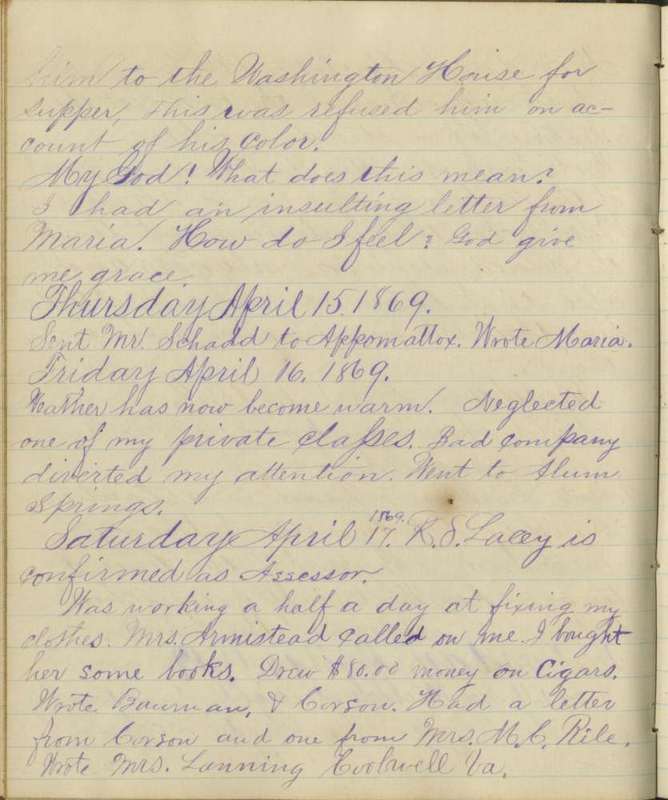 him to the Washington House for
supper, This was refused him on ac-
count of his color.
My God! What does this mean?
I had an insulting letter from
Maria. How do I feel? God give
me grace.
Thursday April 15. 1869.
Sent Mr. Schadd to Appomattox. Wrote Maria.
Friday April 16. 1869.
Weather has now become warm. Neglected
one of my private classes. Bad company
diverted my attention. Went to Alum
Springs.
Saturday April 17. 1869. R. S. Lacey is
confirmed as Assessor.
Was working a half a day at fixing my
clothes. Mrs. Armistead called on me. I bought
her some books. Drew $80.00 money on Cigars.
Wrote Bauman, & Corson. Had a letter
from Corson and one from Mrs. M. C. Rile.
Wrote Mrs. Lanning Va.